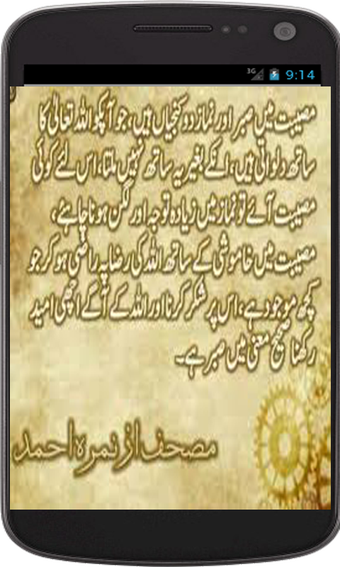 3G 9:14
مصیبت میں صبر اور نماز دو کنجیاں ہیں، جو آپکو اللہ تعالٰی کا
ساتھ دلواتی ہیں، انکے بغیر یہ ساتھ نہیں ملتا، اس لئے کوئی
مصیبت آئے تو نماز میں زیادہ توجہ اور لگن ہونا چاہئے،
مصیبت میں خاموشی کے ساتھ اللہ کی رضا پہ راضی ہو کر جو
کچھ موجود ہے، اس پر شکر کرنا اور اللہ کے آگے اچھی امید
رکھنا صحیح معنی میں صبر ہے۔
مصحف از نمرہ احمد